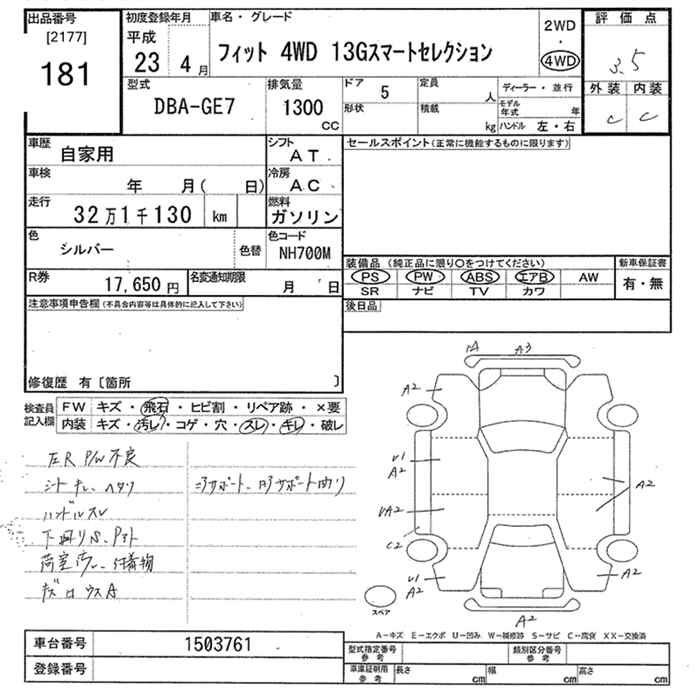 出品番号
[2177]
181
初度登録年月
平成
23 4 月
車名・グレード
フィット 4WD 13Gスマートセレクション
2WD
・
4WD
評価点
3.5
外装 内装
C C
型式
DBA-GE7
排気量
1300
CC
ドア 5
形状
定員 人
積載 kg
ディーラー・並行
モデル年式 年
ハンドル 左・右
車歴 自家用
シフト AT
車検 年 月( 日)
冷房 AC
走行 32万1千130 km
燃料 ガソリン
色 シルバー 色替
色コード NH700M
R券 17,650 円
名変通知期限 月 日
セールスポイント(正常に機能するものに限ります)
装備品(純正品に限り○をつけてください)
PS PW ABS エアB AW
SR ナビ TV カワ
新車保証書
有・無
後日品
注意事項申告欄(不具合内容等は具体的に記入して下さい)
修復歴 有〔箇所 〕
検査員記入欄
FW キズ・飛石・ヒビ割・リペア跡・×要
内装 キズ・汚レ・コゲ・穴・スレ・キレ・破レ
左R P/W不良
シートキレ、ヘタリ
ハンドルスレ
下回りS、
荷室汚レ、付着物
コアサポート、曲り
A3
A2
U1
A2
A2
C2
U1
A2
A2
A2
A2
スペア
A-キズ E-エクボ U-凹み W-補修跡 S-サビ C-腐食 XX-交換済
車台番号 1503761
登録番号
型式指定番号 参考
類別区分番号 参考
車庫証明用 参考
長さ cm
幅 cm
高さ cm